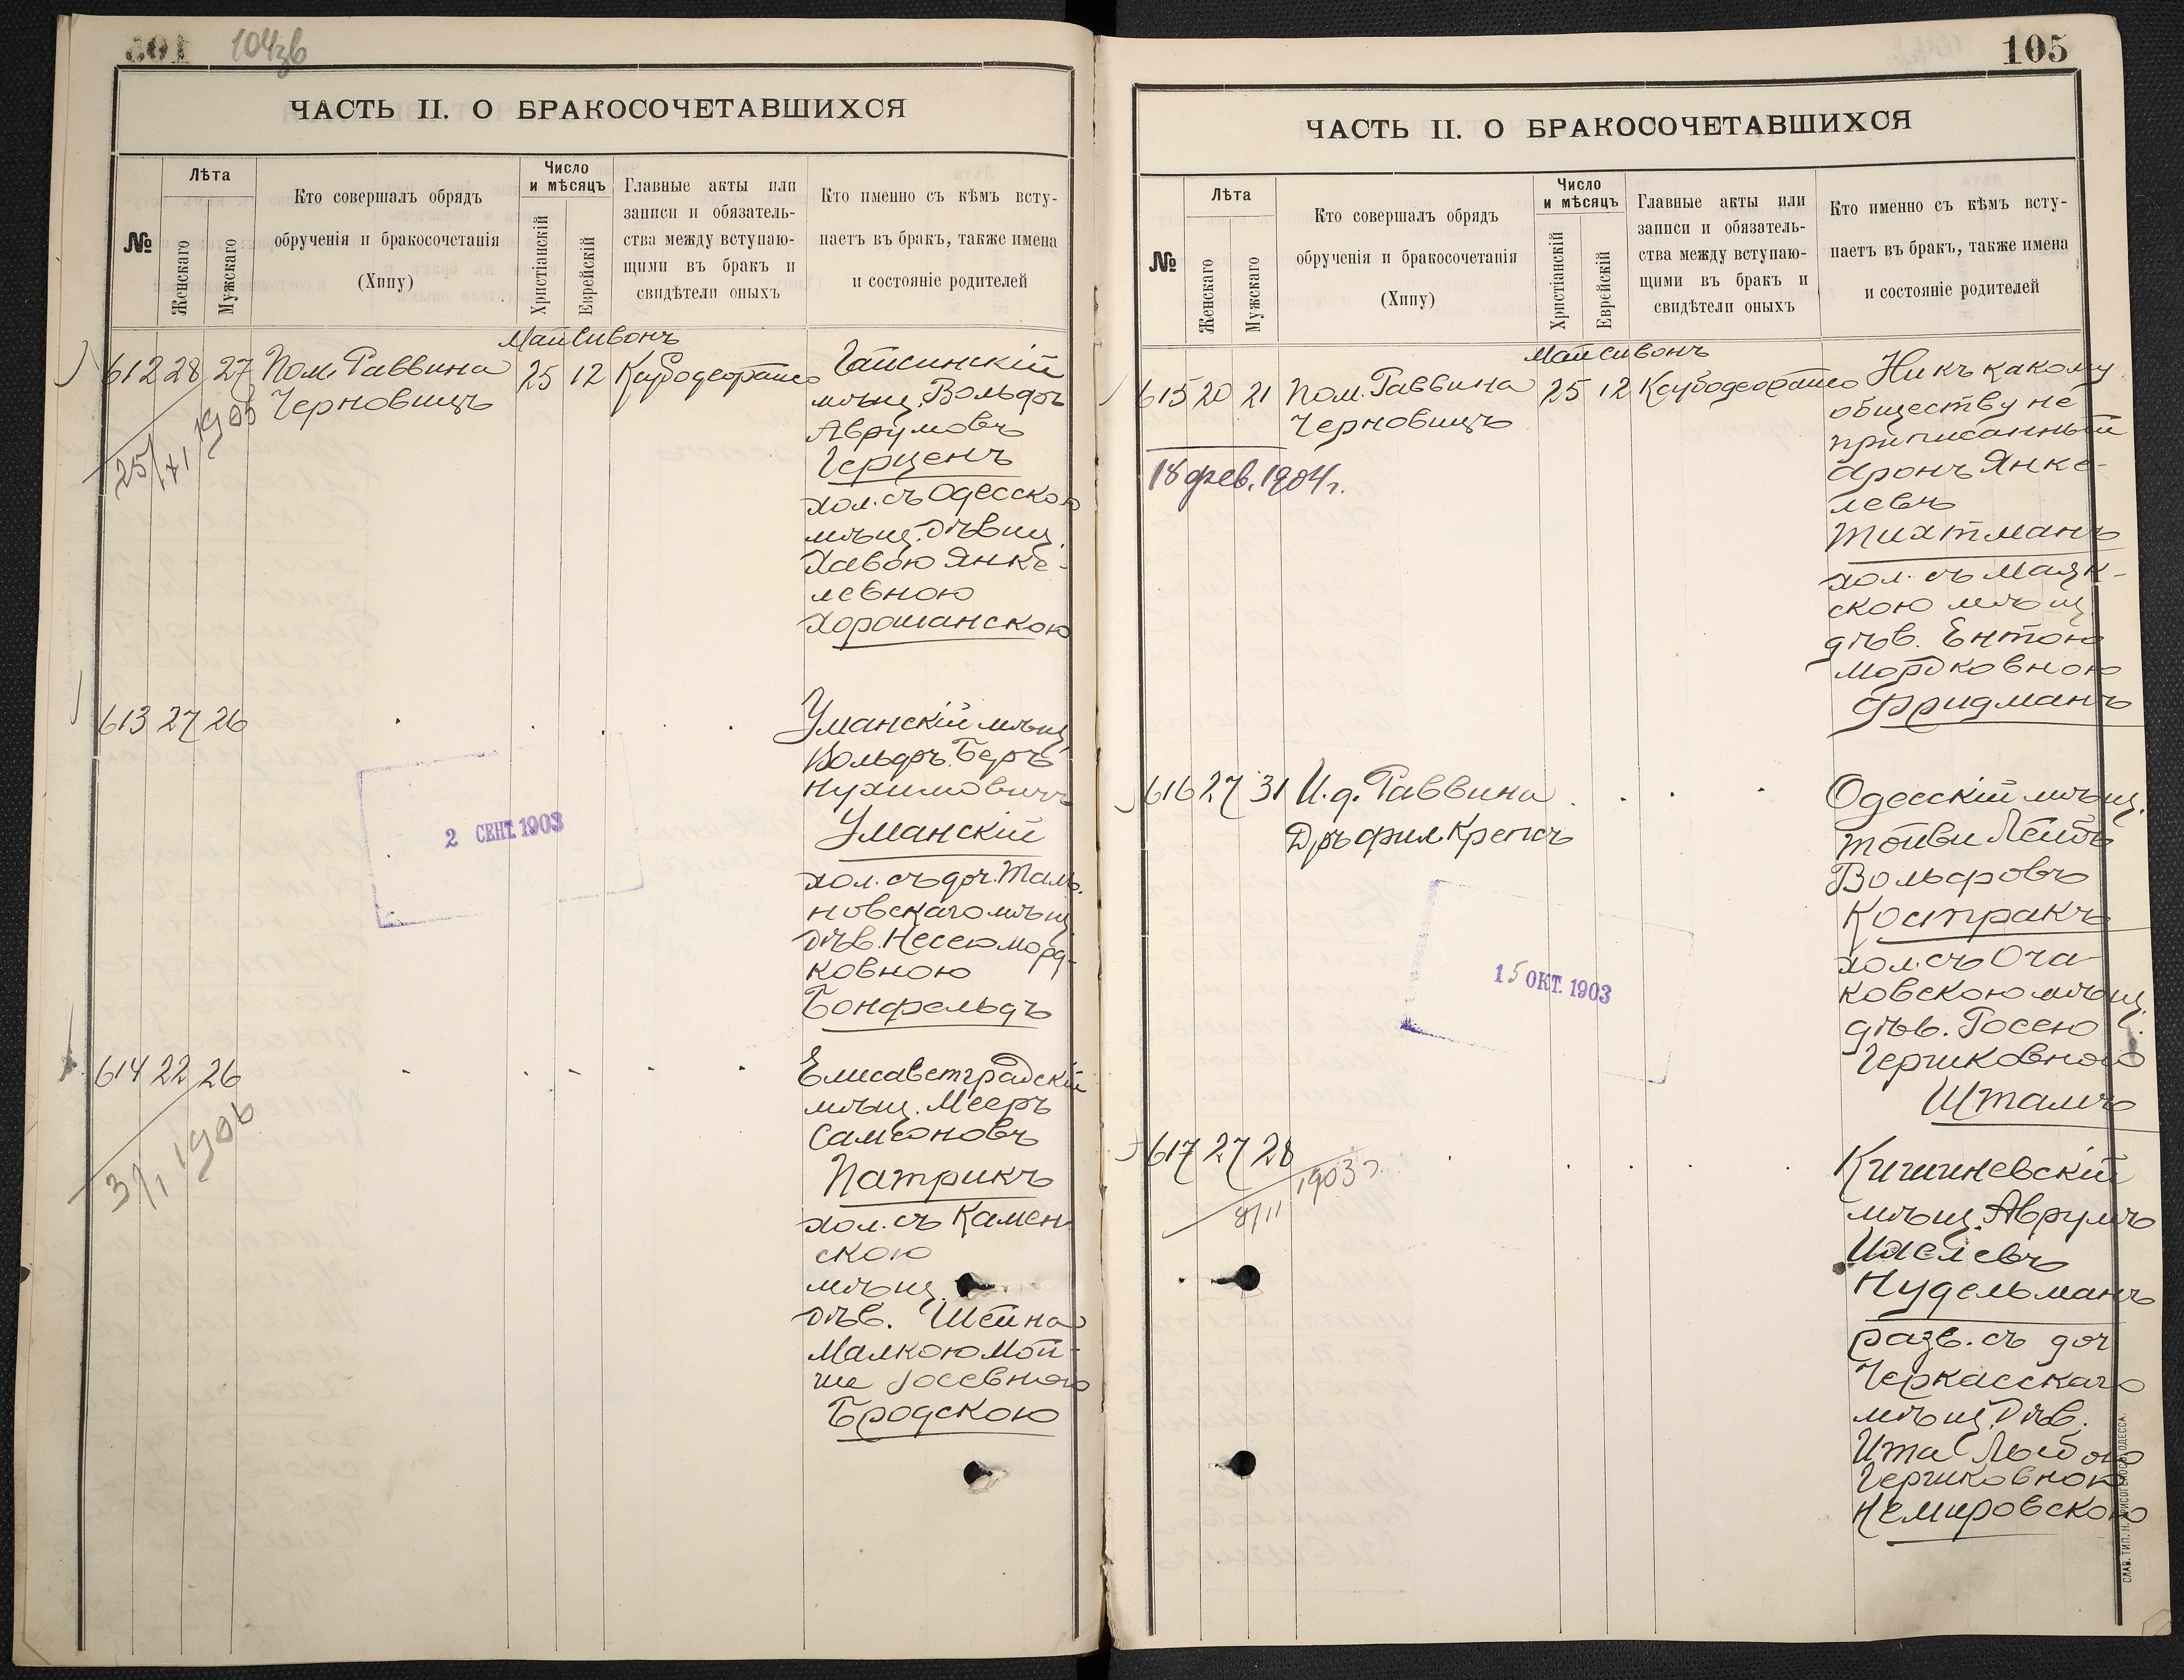 104зв
ЧАСТЬ II. О БРАКОСОЧЕТАВШИХСЯ
№
Лѣта
Женскаго
Мужскаго
Кто совершалъ обрядъ
обрученія и бракосочетанія
(Хипу)
Число
и мѣсяцъ
Христіанскій
Еврейскій
Главные акты или
записи и обязатель-
ства между вступаю-
щими въ бракъ и
свидѣтели оныхъ
Кто именно съ кѣмъ всту-
паетъ въ бракъ, также имена
и состояніе родителей
Май Сивонъ
612 28 27 Пом. Раввина 25 12
Черновицъ
Гайсинскій
мѣщ. Вольфъ
Аврумовъ
Герценъ
хол. съ Одесскою
мѣщ. дѣвиц.
Хавою Янке-
левною
Хорошанскою
613 27 26
Уманскій мѣщ.
Вольфъ Беръ
Нухимовичъ
Уманскій
хол. съ доч. Таль-
новскаго мѣщ.
дѣв. Несею Морд-
ковною
Бонфельдъ
2 СЕНТ. 1903
614 22 26
1906
Елисаветградскій
мѣщ. Мееръ
Самсоновъ
Патрикъ
хол. съ Камен
скою
мѣщ.
дѣв. Шейна
Малкою Мой-
ше Іосевною
Бродскою
105
ЧАСТЬ II. О БРАКОСОЧЕТАВШИХСЯ
№
Лѣта
Женскаго
Мужскаго
Кто совершалъ обрядъ
обрученія и бракосочетанія
(Хипу)
Число
и мѣсяцъ
Христіанскій
Еврейскій
Главные акты или
записи и обязатель-
ства между вступаю-
щими въ бракъ и
свидѣтели оныхъ
Кто именно съ кѣмъ всту-
паетъ въ бракъ, также имена
и состояніе родителей
Май Сивонъ
615 20 21 Пом. Раввина 25 12
Черновицъ
18 фев. 1904 г.
Ни къ какому
обществу не
приписанный
Аронъ Янке-
левъ
Тихтманъ
хол. съ Маяк-
скою мѣщ.
дѣв. Ентою
Мордковною
Фридманъ
616 27 31 И. д. Раввина
Д/ръ фил. Крепсъ
Одесскій мѣщ.
Тойви Лейбъ
Вольфовъ
Костракъ
хол. съ Оча-
ковскою мѣщ.
дѣв. Росею
Гершковною
Штамъ
15 ОКТ. 1903
617 27 28
1903 г.
Кишиневскій
мѣщ. Аврумъ
Нудельманъ
разв. съ доч
Черкасскаго
мѣщ. дѣв.
Ита
Гершковною
Немировскою
СЛАВ. ТИП. Н. ХРИСОГЕЛОСЪ ОДЕССА.